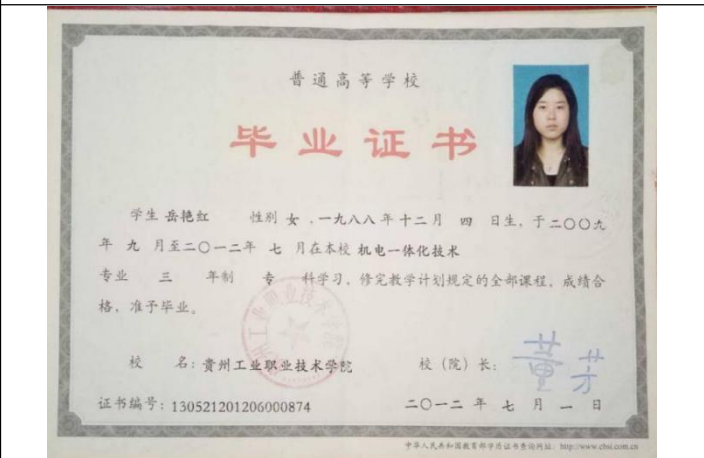 普通高等学校
毕业证书
学生 岳艳红 性别 女 ，一九八八年十二月 四 日生，于二〇〇九
年 九 月至二〇一二年 七 月在本校 机电一体化技术
专业 三 年制 专 科学习，修完教学计划规定的全部课程，成绩合
格，准予毕业。
校 名：贵州工业职业技术学院 校（院）长：
证书编号：130521201206000874 二〇一二 年 七 月 一 日
中华人民共和国教育部学历证书查询网址：http://www.chsi.com.cn